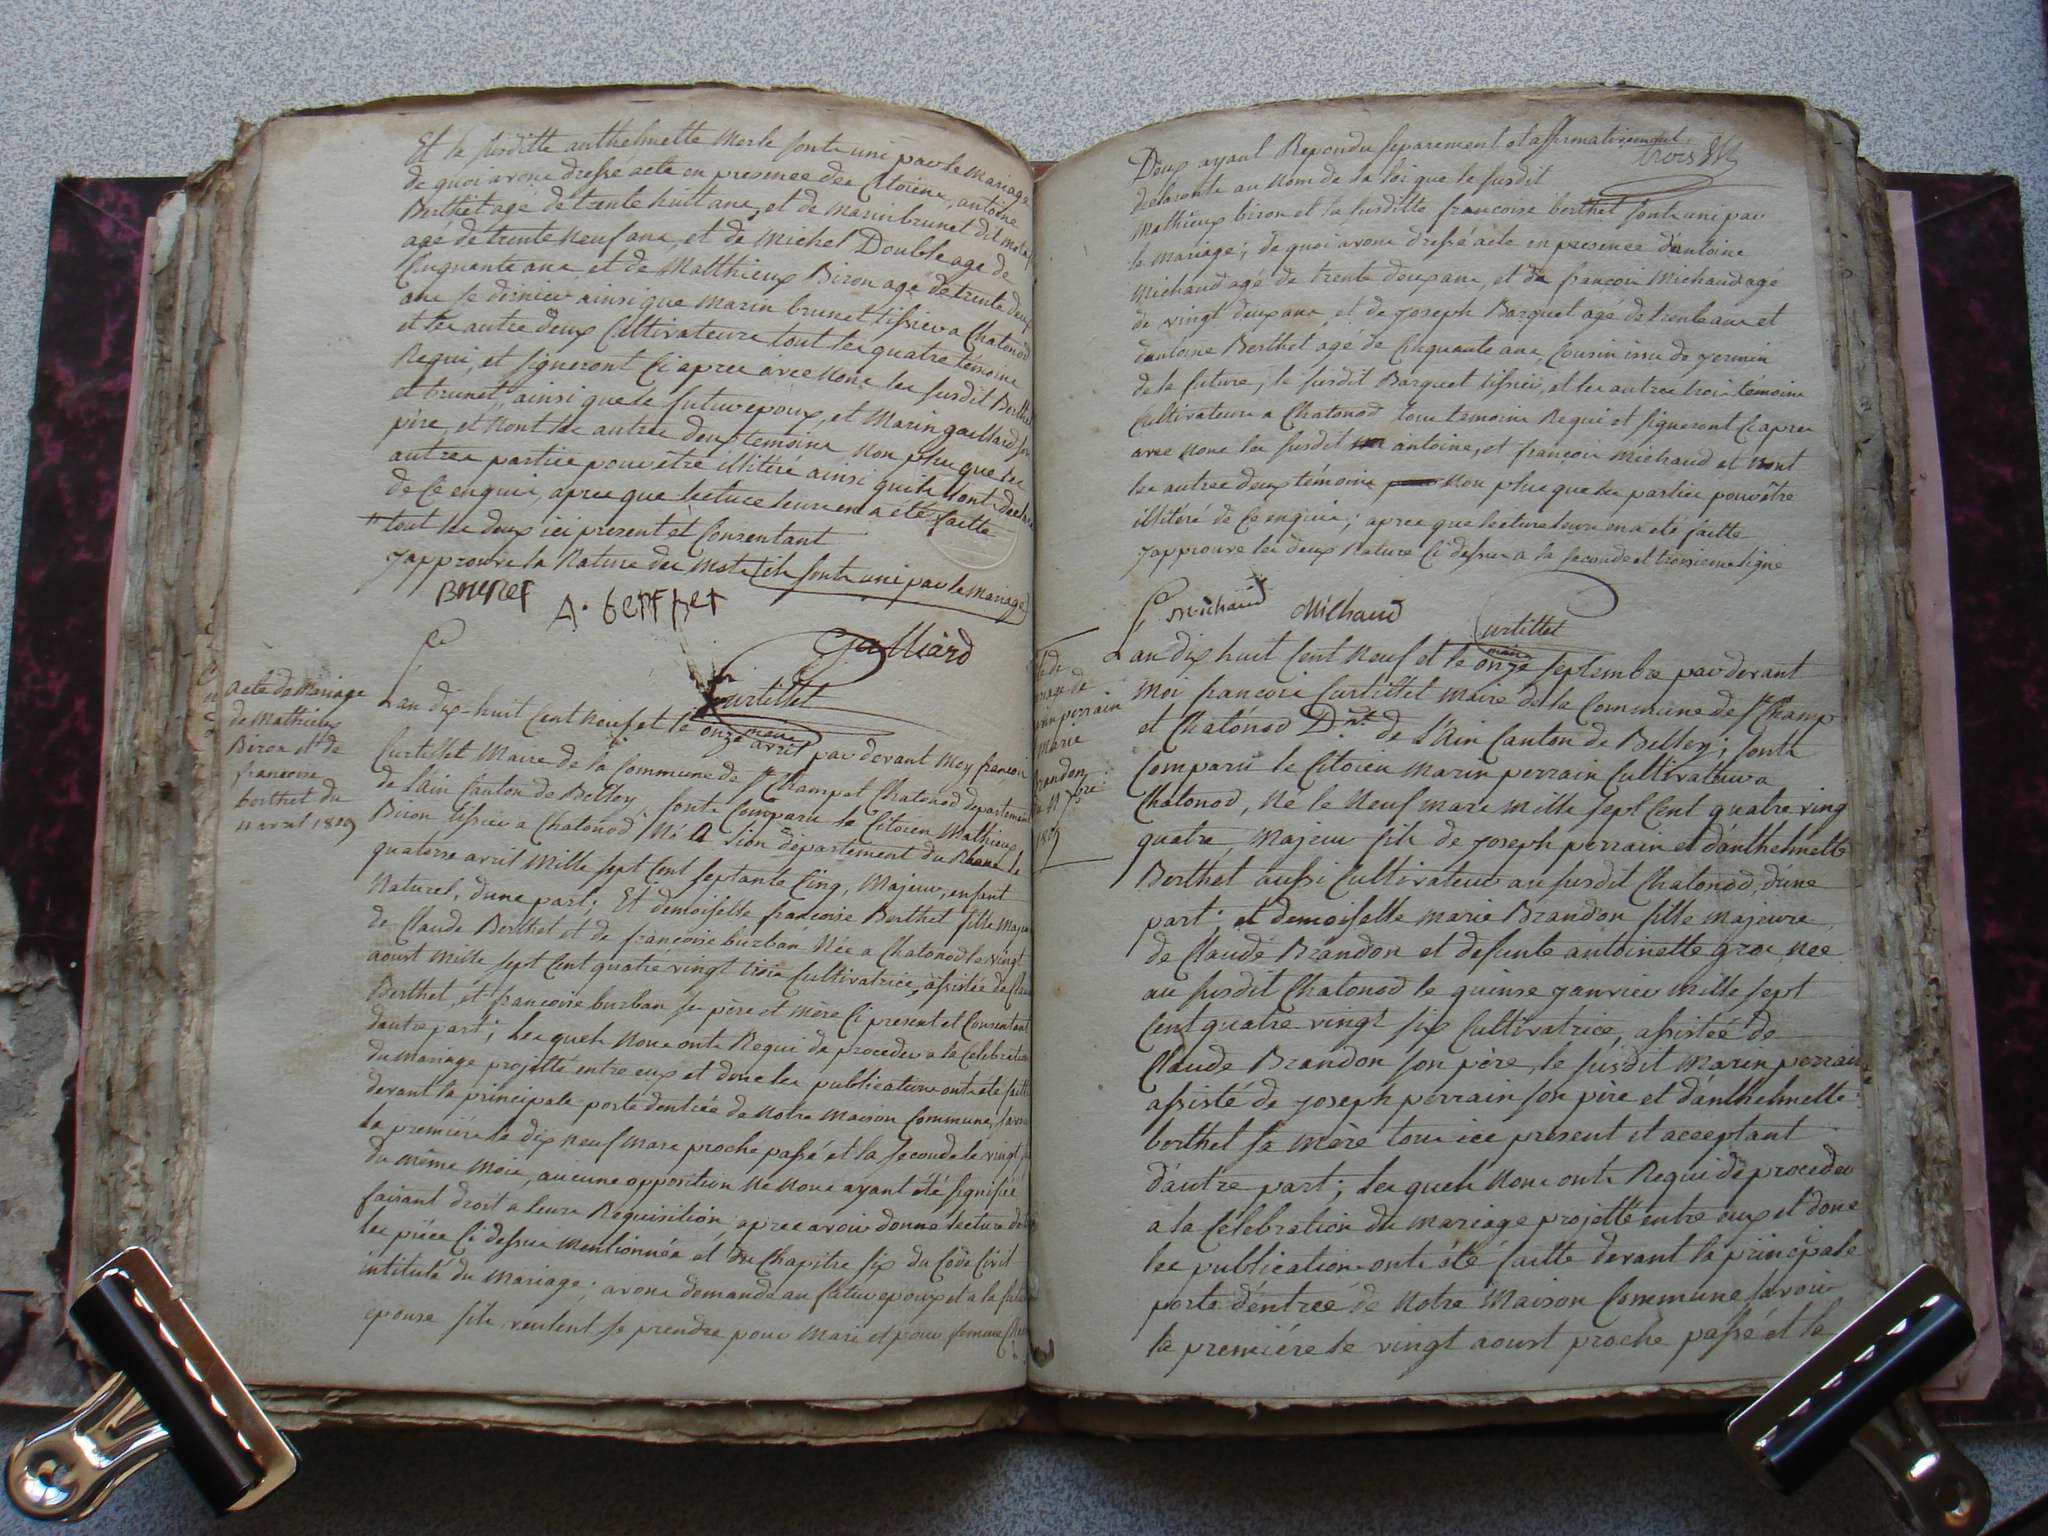 Et la susditte anthelmette Merle sont uni par le mariage
de quoi avons dressé acte en presence des Citoiens, antoine
Berthet agé de trente huit ans, et de marin brunet dit
agé de trente neuf ans, et de Michel Double age de
Cinquante ans et de Matthieux Biron agé de trente deux
ans se dernier ainsi que Marin brunet tissier a Chatonod
et les autre deux Cultivateurs tout les quatre témoins
Requi, et signeront Ci apres avec nous les susdit Berthet
et brunet, ainsi que le futur epoux, et Marin gaillard son
père, et non les autres deux temoins non plus que les
autres partie pour être illitéré ainsi quils ont declaré
de Ce enquis, apres que lecture leurs en a eté faitte
tout les deux ici present et Consentant
Japprouve la Rature des mots sils sont uni par le Mariage
Brunet A. berthet
Gailliard
Curtillet
maire
acte de Mariage
de Mathieux
Biron et de
francoise
berthet du
11 avril 1809
Lan dix-huit Cent neuf et le onze avril par devant Moy francois
Curtillet Maire de la Commune de St Champ et Chatonod departement
de L'ain Canton de Belley, sont Comparu le Citoien Mathieux
Biron tissier a Chatonod Né a Lion département du Rhone le
quatorse avril Mille sept Cent septante Cinq, Majeur, enfant
Naturel, dune part; Et demoiselle francoise Berthet fille Majeure
de Claude Berthet et de francoise burban Née a Chatonod le vingt
aoust Mille sept Cent quatre vingt trois Cultivatrice, assistée de Claude
Berthet, et francoise burban se père et mère Ci present et Consentant
dautre part; Les quels Nous ont Requi de proceder a la Celebration
du Mariage projetté entre eux et dont les publications ont été faitte
devant la principale porte dentrée de Notre Maison Commune, savoir
la premiére le dix neuf Mars proche passé et la seconde le vingt six
du même mois, aucune opposition ne nous ayant été signifié
faisant droit a leurs Requisition, apres avoir donné lecture de
les piéces Ci dessus mentionnées et du Chapitre six du Code Civil
intitulé du Mariage; avons demandé au futur epoux et a la future
epouse sils veulent se prendre pour Mari et pour femme
trois
Deux ayant Repondu separement et affirmativement,
declarons au Nom de la loi que le susdit
Mathieux biron et la susditte francoise berthet sont uni par
le Mariage; de quoi avons dressé acte en presence dantoine
Michaud agé de trente deux ans, et de francois Michaud agé
de vingt deux ans, et de Joseph Barquet agé de trente ans et
dantoine Berthet agé de Cinquante ans, Cousin issu de germin
de la future, le susdit Barquet tissier, et les autres trois témoins
Cultivateurs a Chatonod tous temoins Requi et signeront Ci apres
avec nous les susdit antoine, et francois Michaud et Non
les autres deux témoins non plus que les parties pour être
illitéré de Ce enquis; apres que lecture leurs en a eté faitte
Japprouve les deux Rature Ci dessus a la seconde et troisieme ligne
Michaud Michaud
Curtillet
maire
perrain
marie
brandon
Lan dix huit Cent Neuf et le onze septembre par devant
Moi francois Curtillet Maire de la Commune de St Champ
et Chatonod Dnt de L'Ain Canton de Belley; sont
Comparu le Citoien Marin perrain Cultivateur a
Chatonod, Né le Neuf mars mille sept Cent quatre ving
quatre, Majeur fils de Joseph perrain et d'anthelmette
Berthet aussi Cultivateur au susdit Chatonod, dune
part; et demoiselle marie Brandon fille Majeure
de Claude Brandon et defunte antoinette gros née
au susdit Chatonod le quinse Janvier mille sept
Cent quatre vingt six Cultivatrice, assistée de
Claude Brandon son père, le susdit Marin perrain
assisté de Joseph perrain son père et d'anthelmette
berthet sa mère tous ice present et acceptant
d'autre part; les quels Nous ont Requi de proceder
a la Célébration du Mariage projetté entre eux et dont
les publication ont été faitte devant la principale
porte d'entrée de Notre Maison Commune savoir
la premiére le vingt aoust proche passé et le